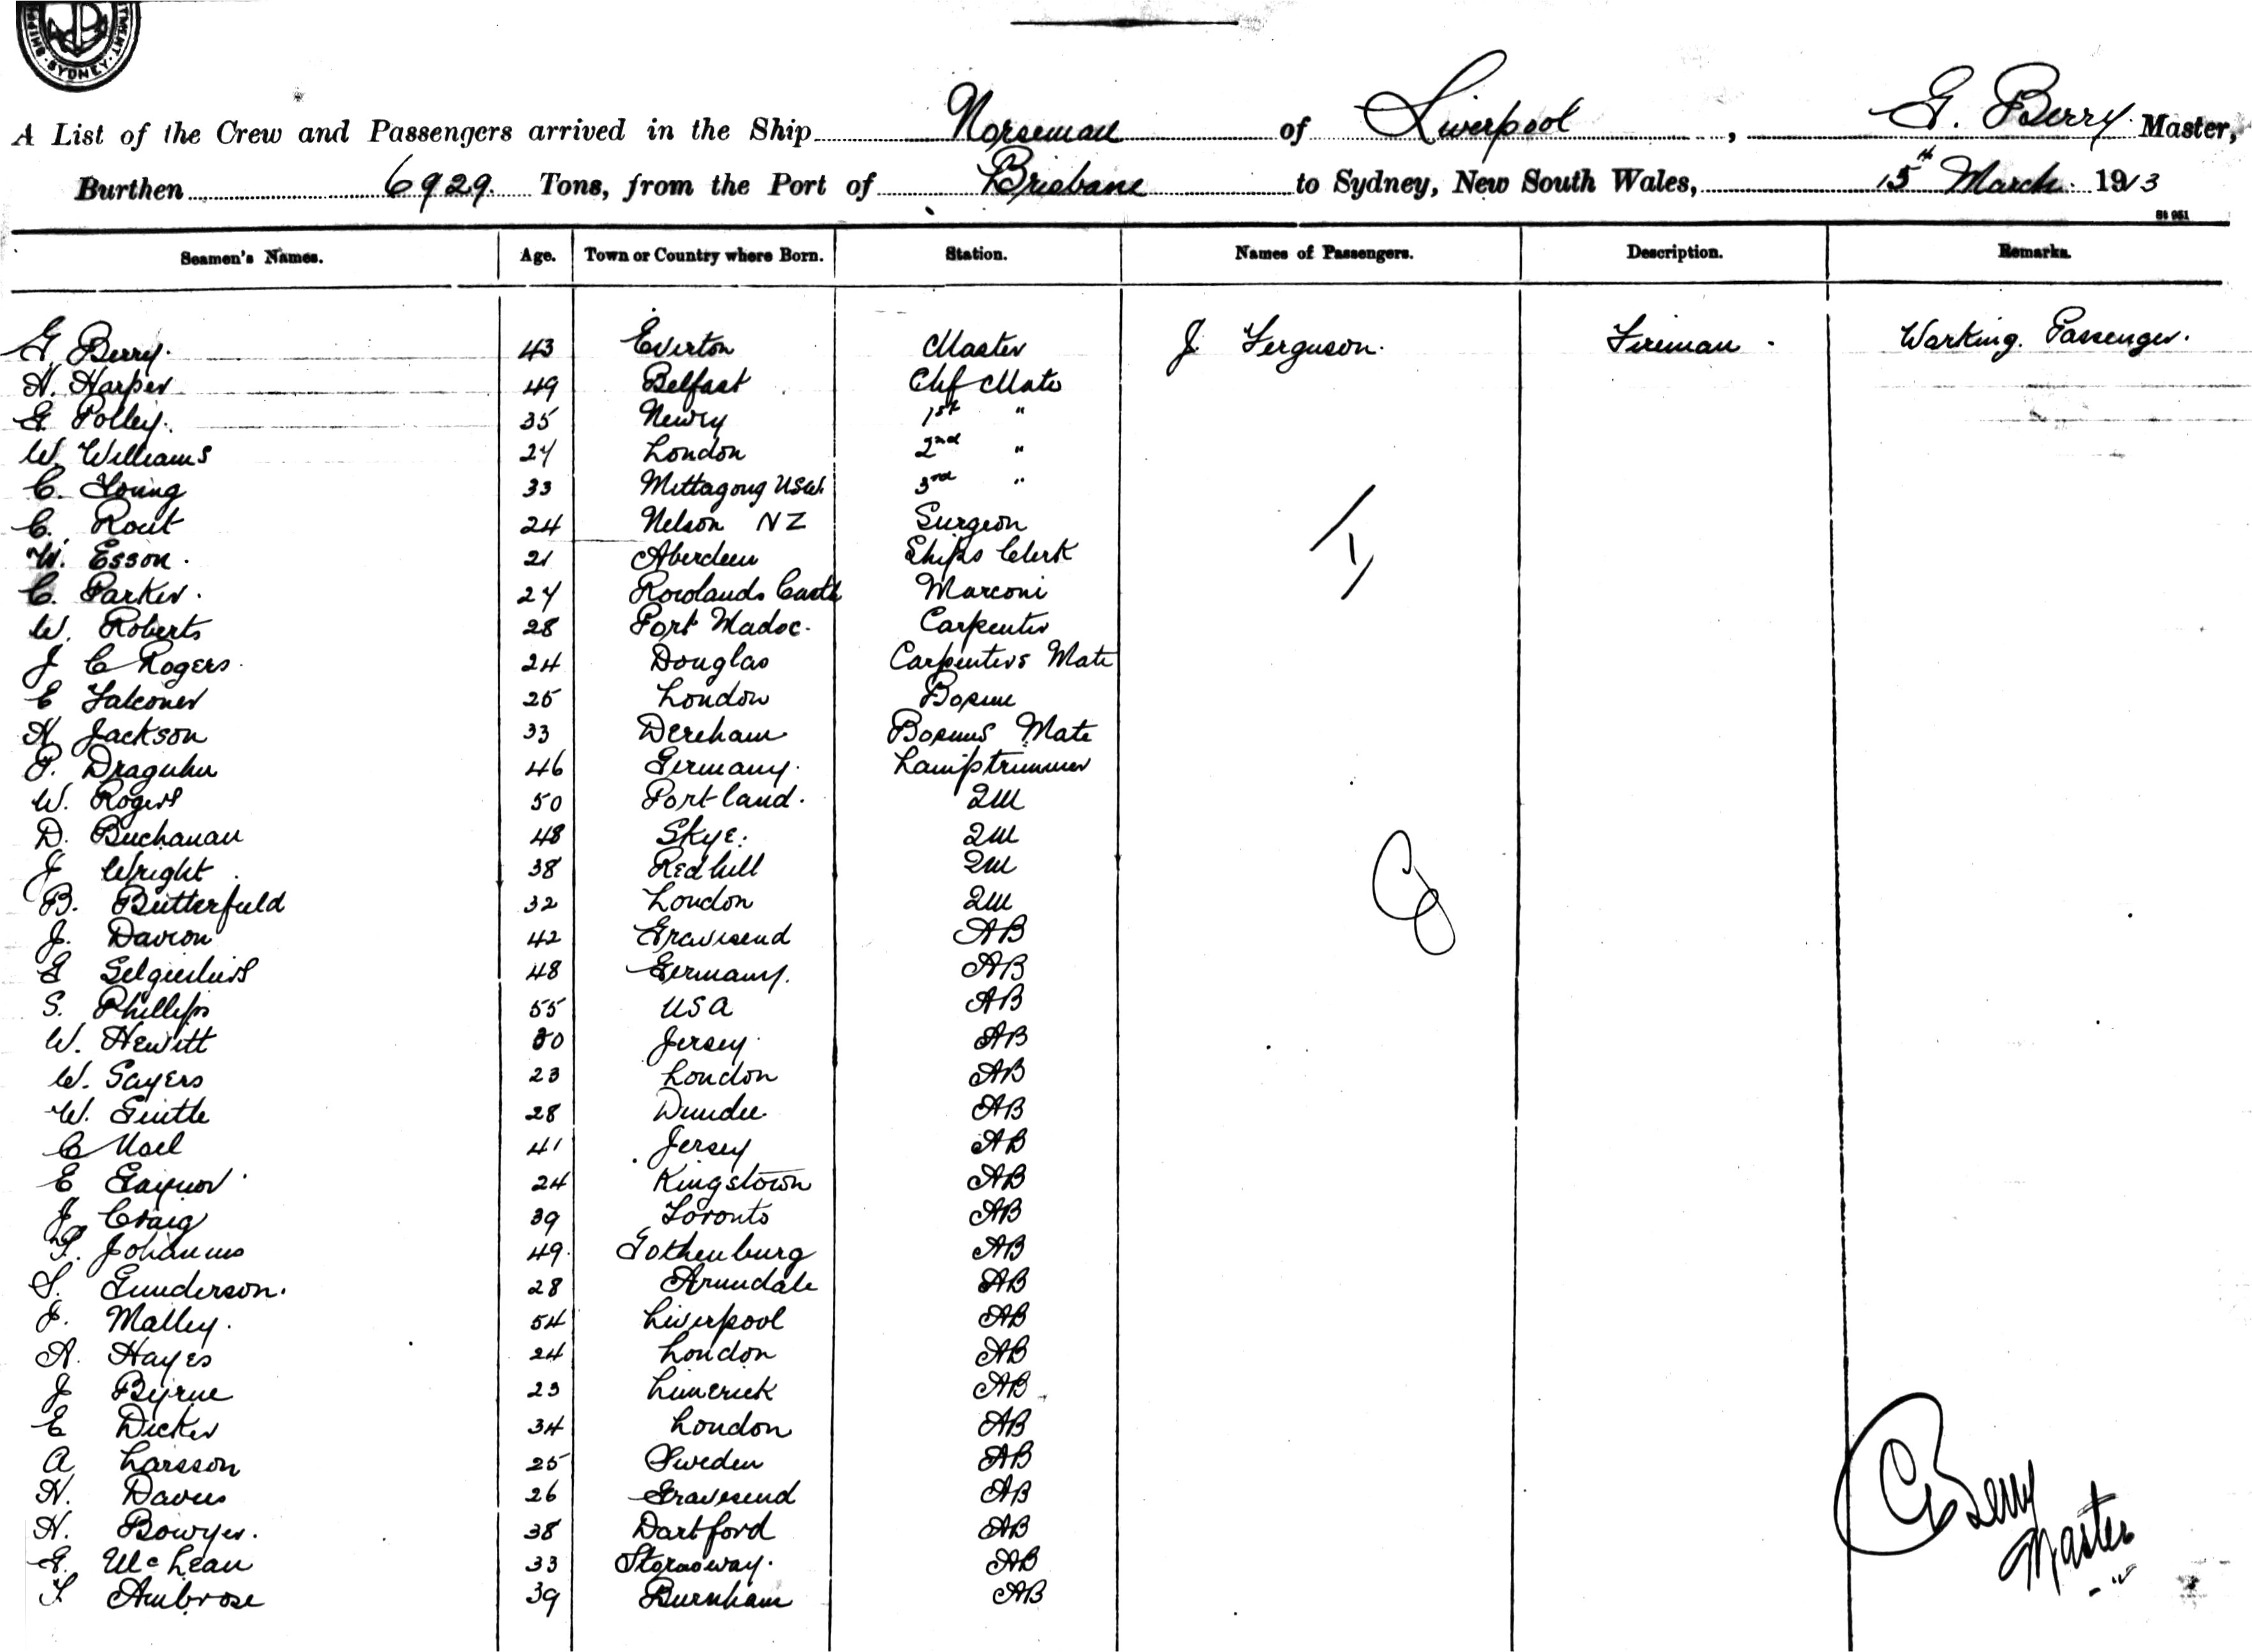 SYDNEY
A List of the Crew and Passengers arrived in the Ship Norseman of Liverpool, G. Berry Master,
Burthen 6929. Tons, from the Port of Brisbane to Sydney, New South Wales, 15th March 1913
Seamen's Names. Age. Town or Country where Born. Station. Names of Passengers. Description. Remarks.
G Berry. 43 Everton Master J Ferguson. Fireman. Working. Passenger.
H. Harper 49 Belfast Chf Mate
G Polley. 35 Newry 1st "
W. Williams 27 London 2nd "
C. Young 33 Mittagong NSW. 3rd "
C. Rout 24 Nelson NZ Surgeon
W. Esson. 21 Aberdeen Ships Clerk
C. Parker. 27 Rowlands Castle Marconi
W. Roberts 28 Port Madoc. Carpenter
J C Rogers. 24 Douglas Carpenters Mate
E Falconer 25 London Bosun
H Jackson 33 Dereham Bosuns Mate
P. Draguhn 46 Germany. Lamptrimmer
W. Rogers 50 Portland. QM
D. Buchanan 48 Skye. QM
J Wright 38 Redhill QM
B. Butterfield 32 London QM
J. 42 Gravesend AB
G 48 Germany. AB
S. Phillips 55 USA AB
W. Hewitt Jersey. AB
W. Sayers 23 London AB
W. 28 Dundee AB
C Noel 41 Jersey AB
E Gaynor. 24 Kingstown AB
J Craig 39 Toronto AB
49. Gothenburg AB
S. Gunderson. 28 Arundale AB
J. Malley. 54 Liverpool AB
A. Hayes 24 London AB
J Byrne 23 Limerick AB
E Dicker 34 London AB
A Larsson 25 Sweden AB
H. Davies 26 Gravesend AB
H. Bowyer. 38 Dartford AB
G. McLean 33 Stornoway. AB
Ambrose 39 Burnham AB
G Berry
Master